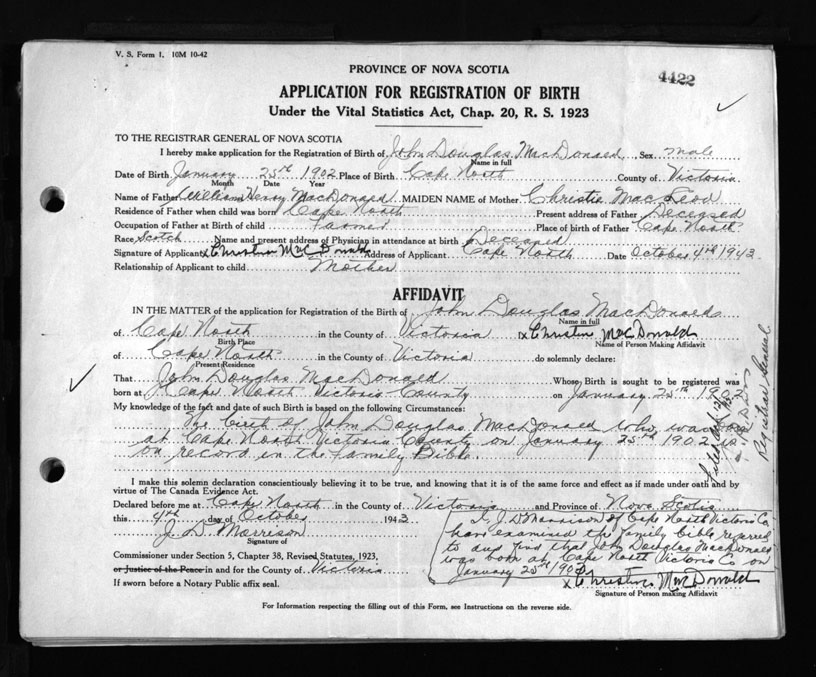 V. S. Form 1. 10M 10-42
4422
PROVINCE OF NOVA SCOTIA
APPLICATION FOR REGISTRATION OF BIRTH
Under the Vital Statistics Act, Chap. 20, R. S. 1923
TO THE REGISTRAR GENERAL OF NOVA SCOTIA
I hereby make application for the Registration of Birth of John Douglas MacDonald, Sex male
Name in full
Date of Birth, January 25th 1902 Place of Birth Cape North County of Victoria
Month Date Year
Name of Father William Henry MacDonald MAIDEN NAME of Mother Christie MacLeod
Residence of Father when child was born Cape North Present address of Father Deceased
Occupation of Father at Birth of child Farmer Place of birth of Father Cape North
Race Scotch Name and present address of Physician in attendance at birth Deceased
Signature of Applicant x Christie MacDonald Address of Applicant Cape North Date October 4th 1943
Relationship of Applicant to child Mother
AFFIDAVIT
IN THE MATTER of the application for Registration of the Birth of John Douglas MacDonald
Name in full
of Cape North in the County of Victoria x Christie MacDonald
Birth Place Name of Person Making Affidavit
of Cape North in the County of Victoria do solemnly declare:
Present Residence
That John Douglas MacDonald Whose Birth is sought to be registered was
born at Cape North Victoria County on January 25th 1902
My knowledge of the fact and date of such Birth is based on the following Circumstances:
The birth of John Douglas MacDonald who was born
at Cape North Victoria County on January 25th 1902 is
on record in the Family Bible.
Registrar General
I make this solemn declaration conscientiously believing it to be true, and knowing that it is of the same force and effect as if made under oath and by
virtue of The Canada Evidence Act.
Declared before me at Cape North in the County of Victoria and Province of Nova Scotia
this 4th day of October 1943
J. D. Morrison
Signature of
I J. D. Morrison of Cape North Victoria Co.
have examined the family bible referred
to and find that John Douglas MacDonald
was born at Cape North Victoria Co on
January 25th 1902
Commissioner under Section 5, Chapter 38, Revised Statutes, 1923,
or Justice of the Peace in and for the County of Victoria
x Christie MacDonald
If sworn before a Notary Public affix seal.
Signature of Person making Affidavit
For Information respecting the filling out of this Form, see Instructions on the reverse side.